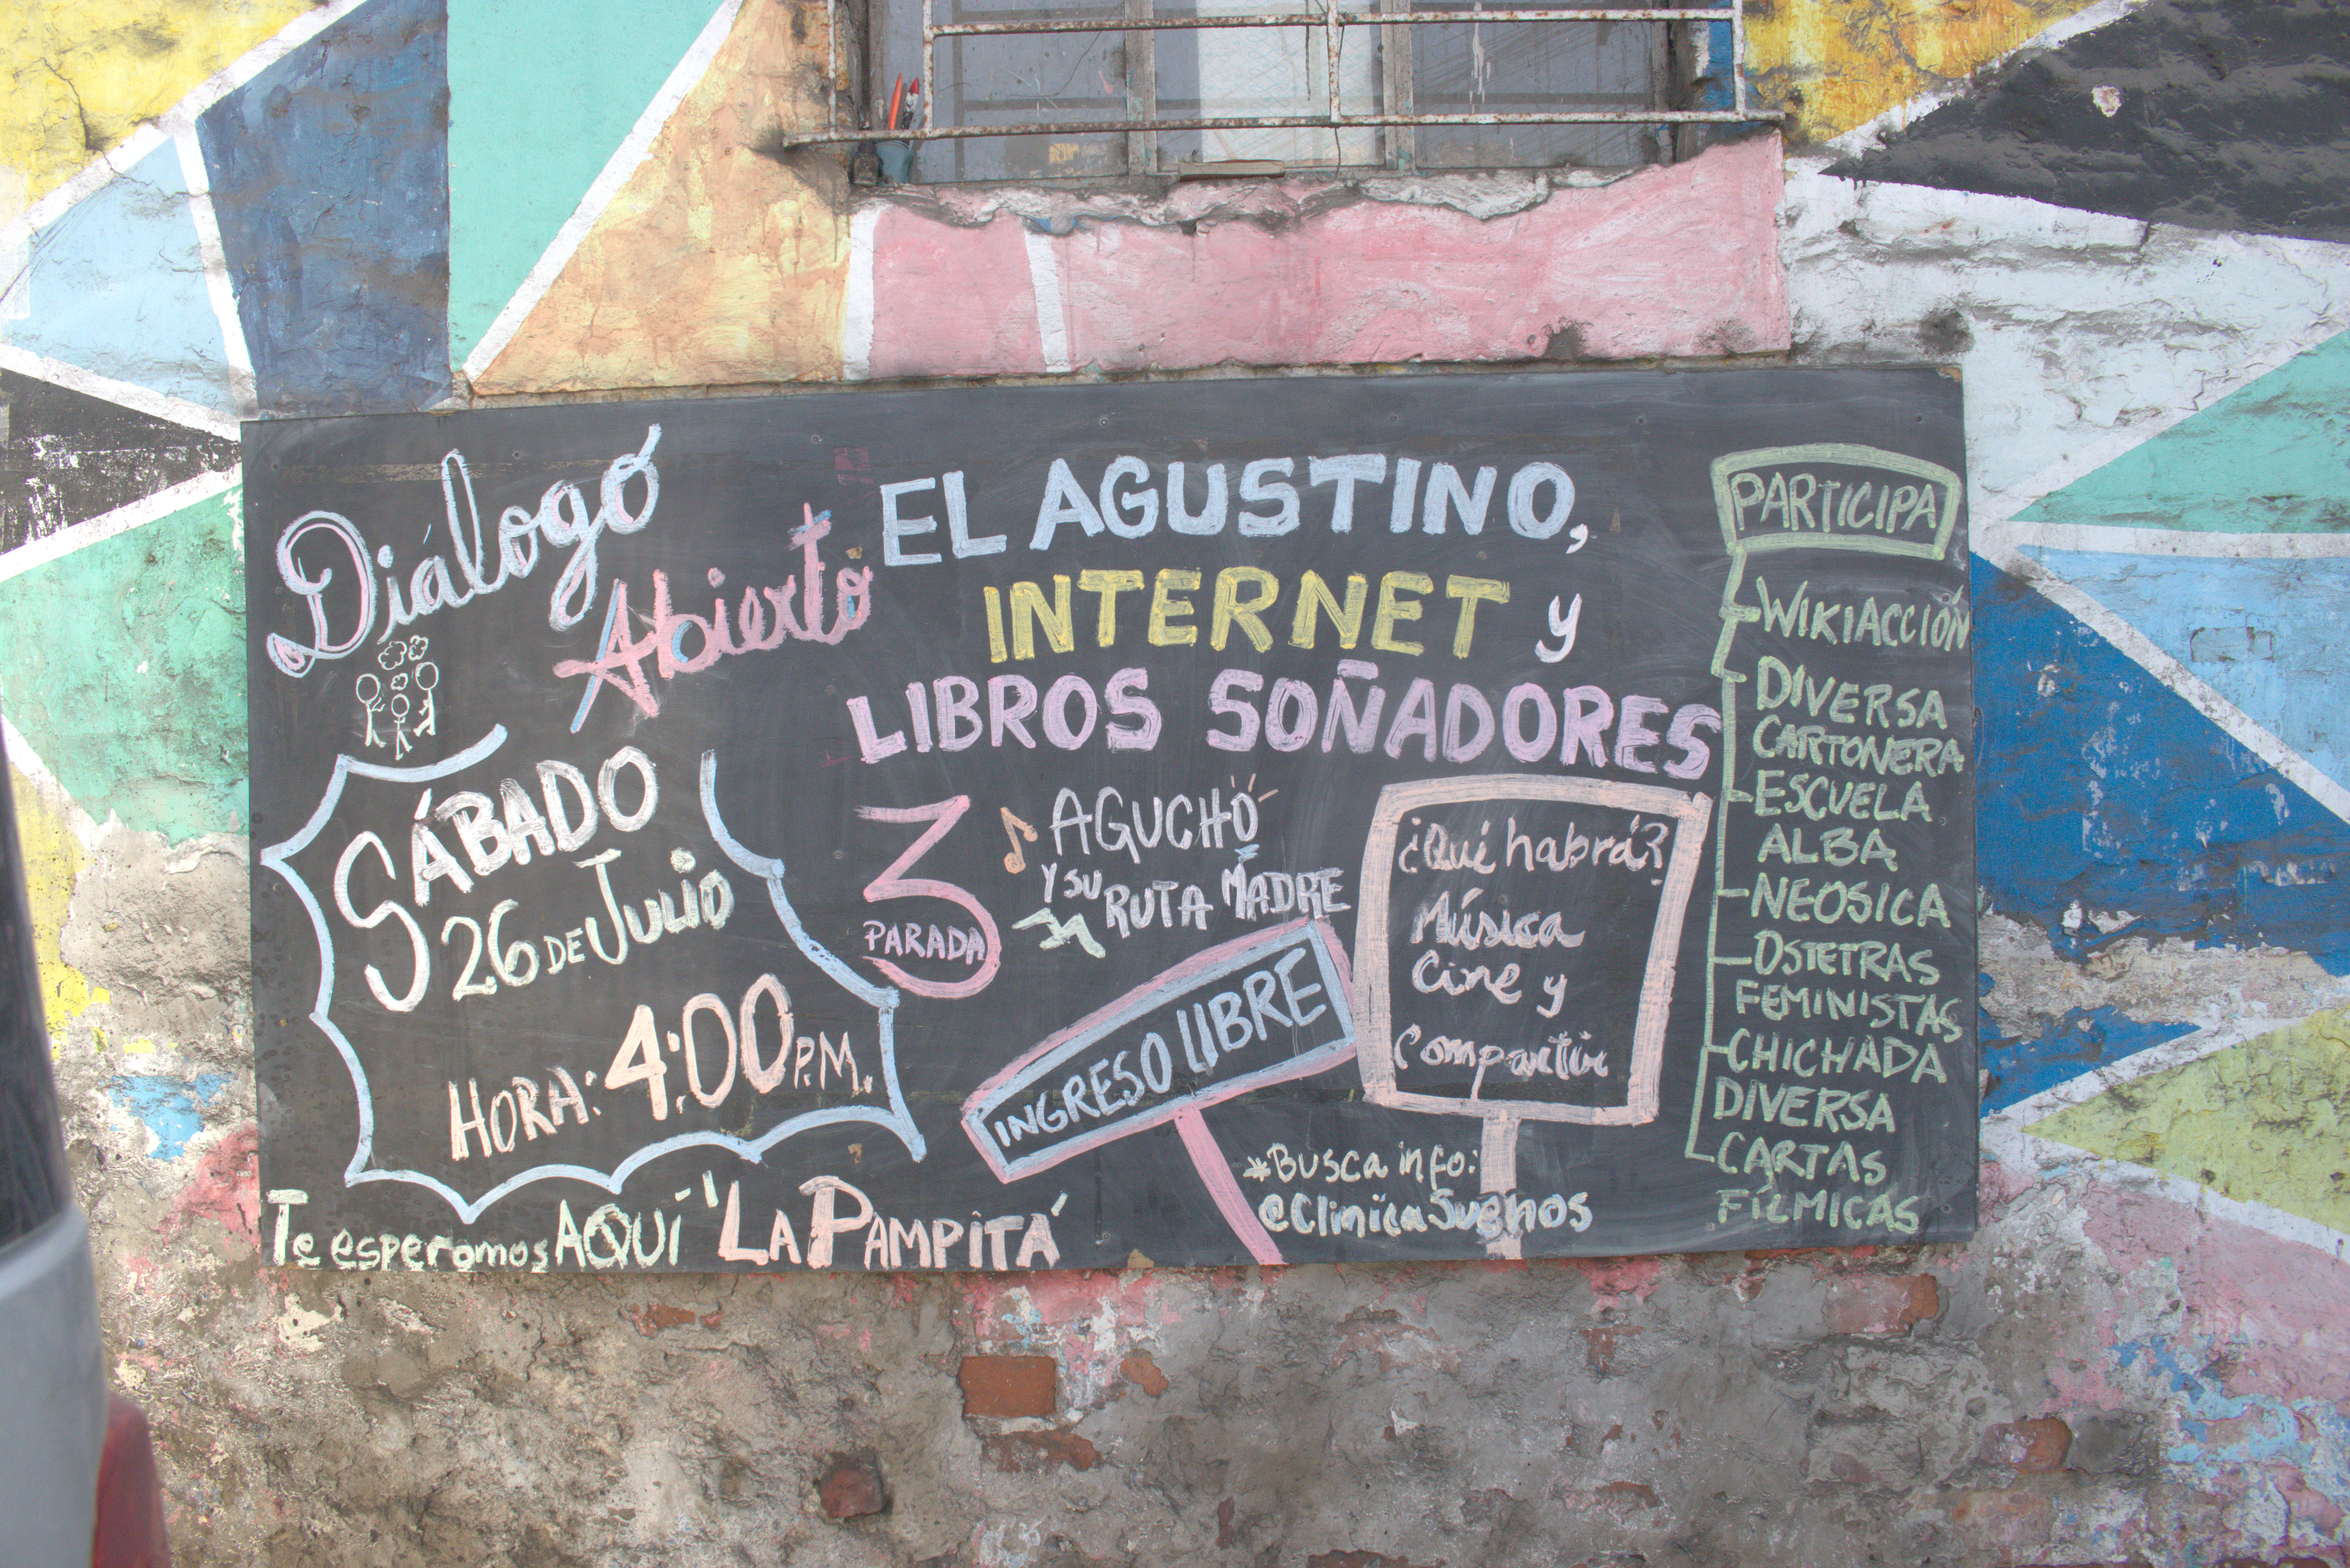 Diálogo
Abierto
EL AGUSTINO,
INTERNET y
LIBROS SOÑADORES
SÁBADO
26 DE JULIO
HORA: 4:00 P.M.
3
PARADA
AGUCHO
Y SU RUTA MADRE
INGRESO LIBRE
¿Qué habrá?
Música
Cine y
Compartir
*Busca info:
@ClinicaSueños
Te esperamos AQUÍ "LA PAMPITA"
PARTICIPA
WIKIACCIÓN
DIVERSA
CARTONERA
ESCUELA
ALBA
NEOSICA
OSTETRAS
FEMINISTAS
CHICHADA
DIVERSA
CARTAS
FÍLMICAS